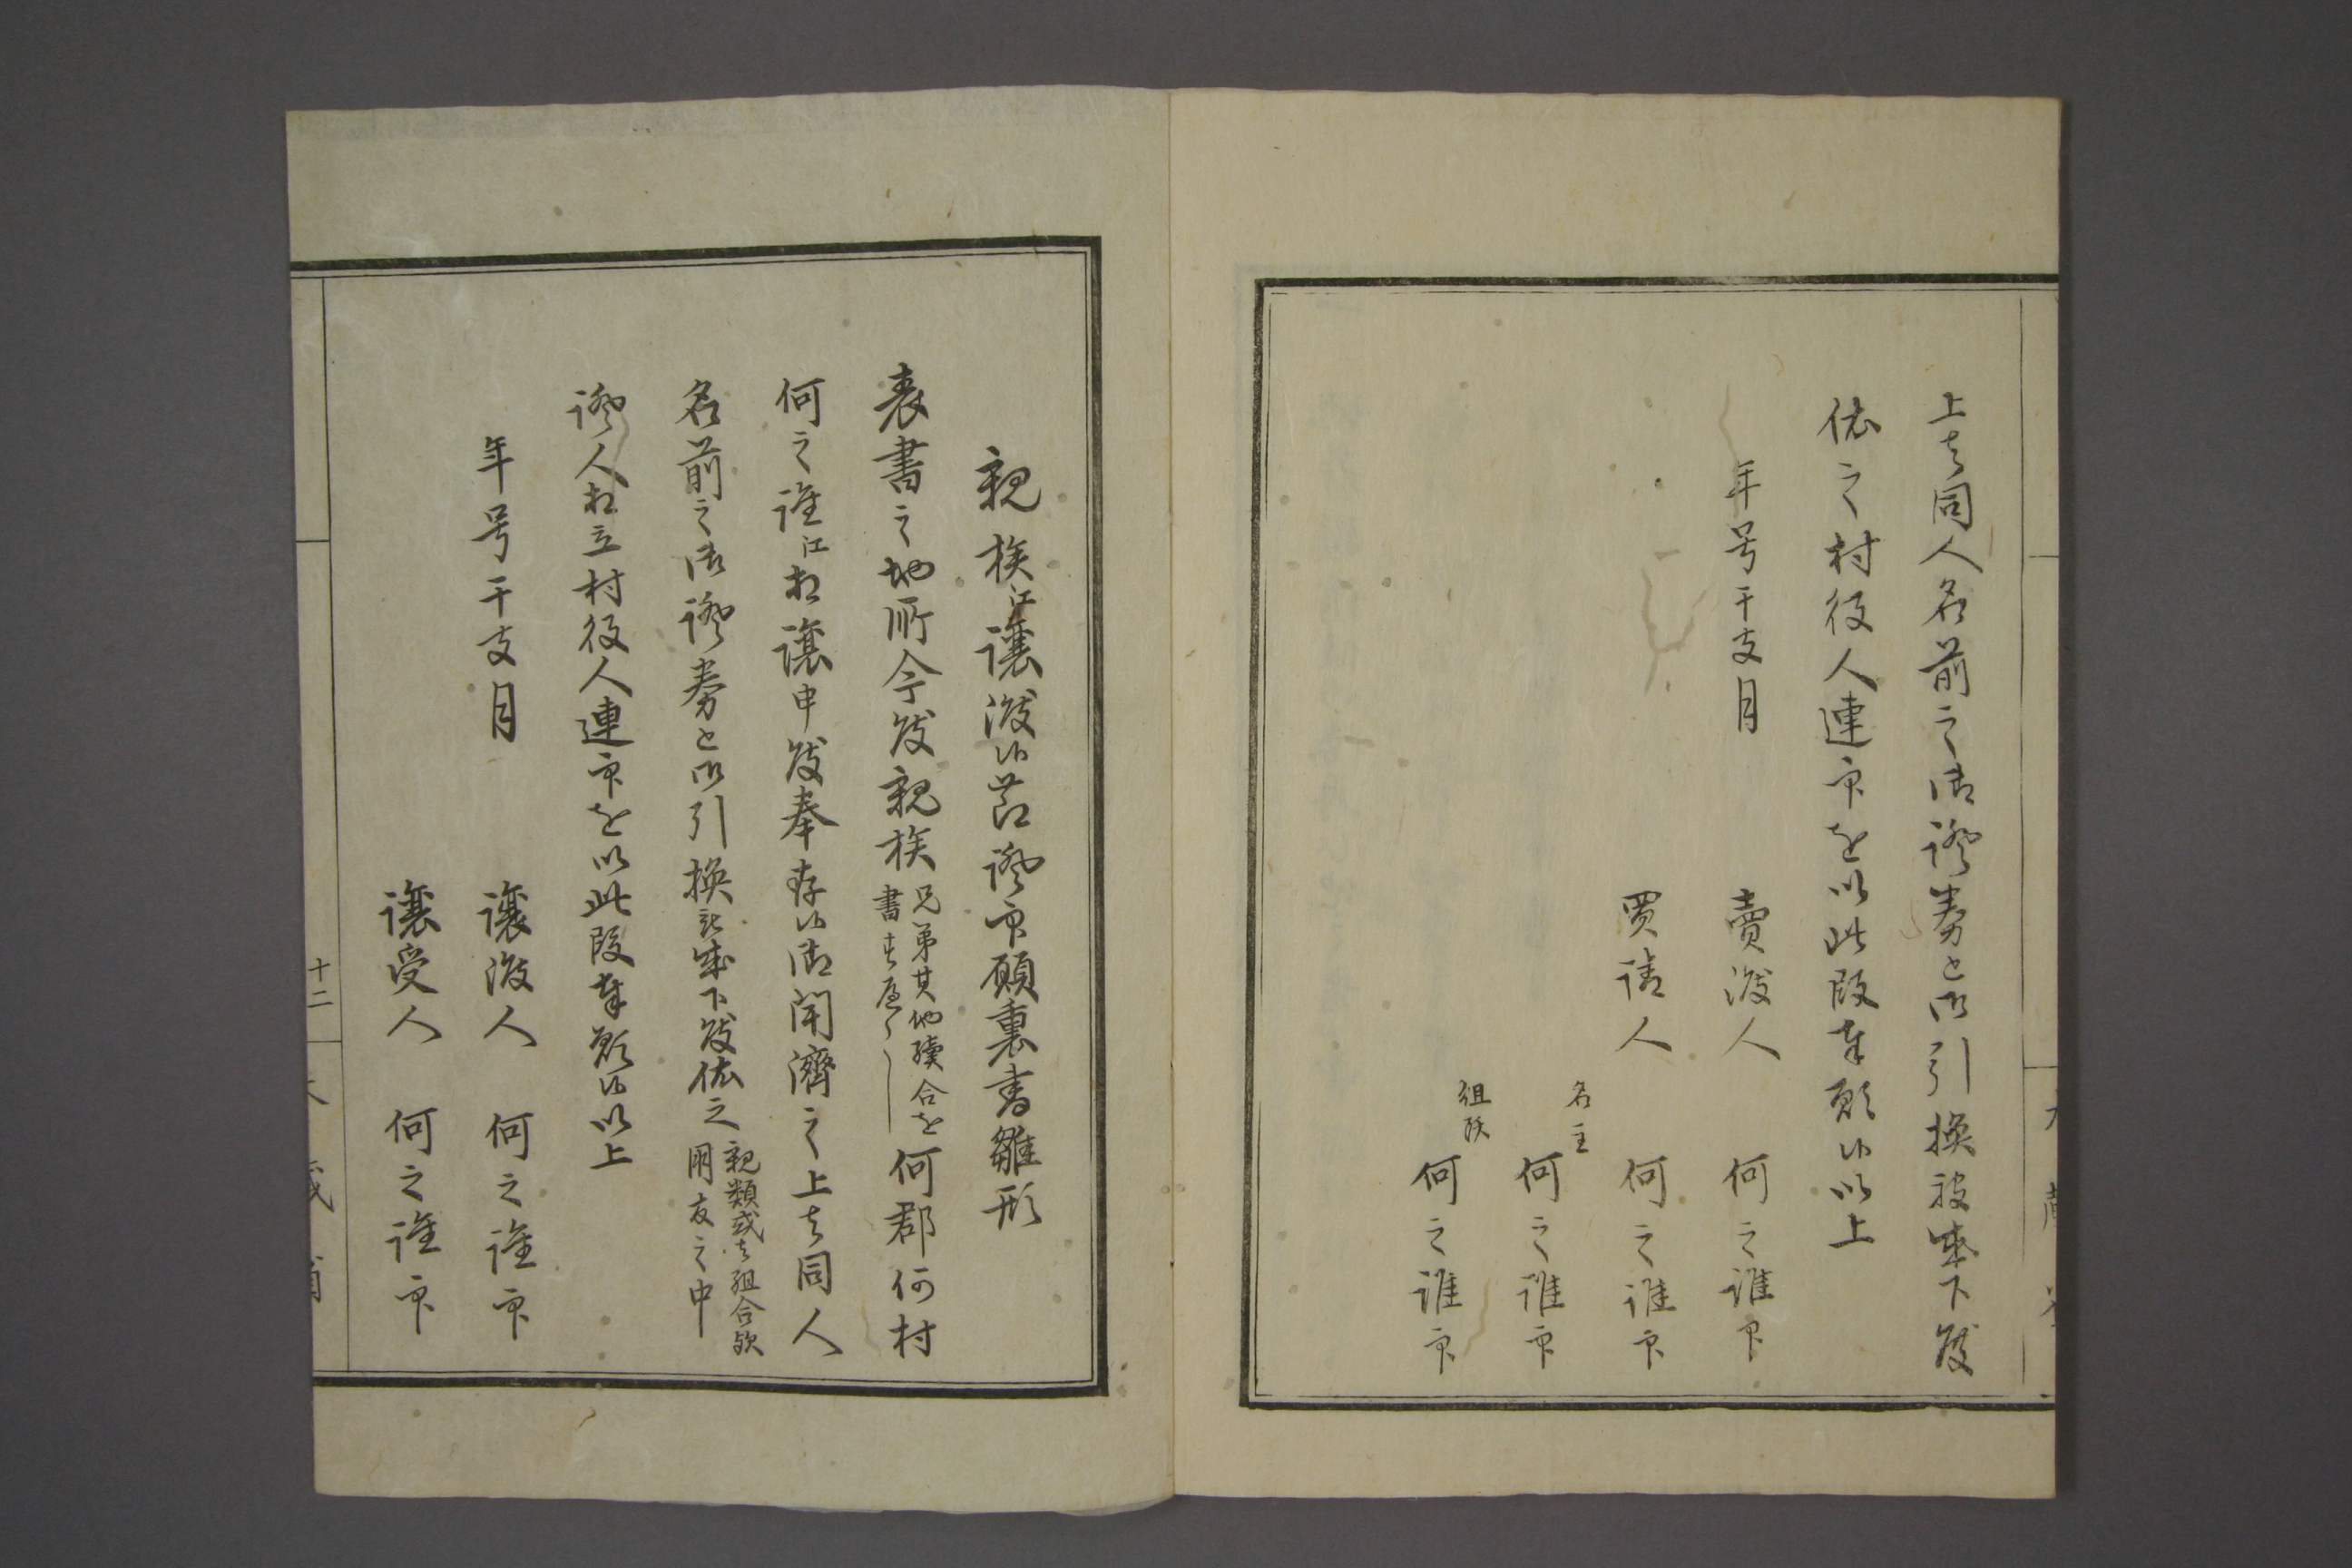 上者同人名前之御證券と御引換被成下度
依之村役人連印を以此段奉願候以上
年号干支月
賣渡人 何之誰印
買請人 何之誰印
名主 何之誰印
組頭 何之誰印
親族江讓渡候節證印願裏書雛形
表書之地所今般親族
兄弟其他續合を
書
何郡何村
何之誰江相讓申度奉存候御聞濟之上者同人
名前之御證券と御引換被成下度依之
親類或者組合歟
朋友之中
證人相立村役人連印を以此段奉願候以上
年号干支月
讓渡人 何之誰印
讓受人 何之誰印
十二
大蔵省